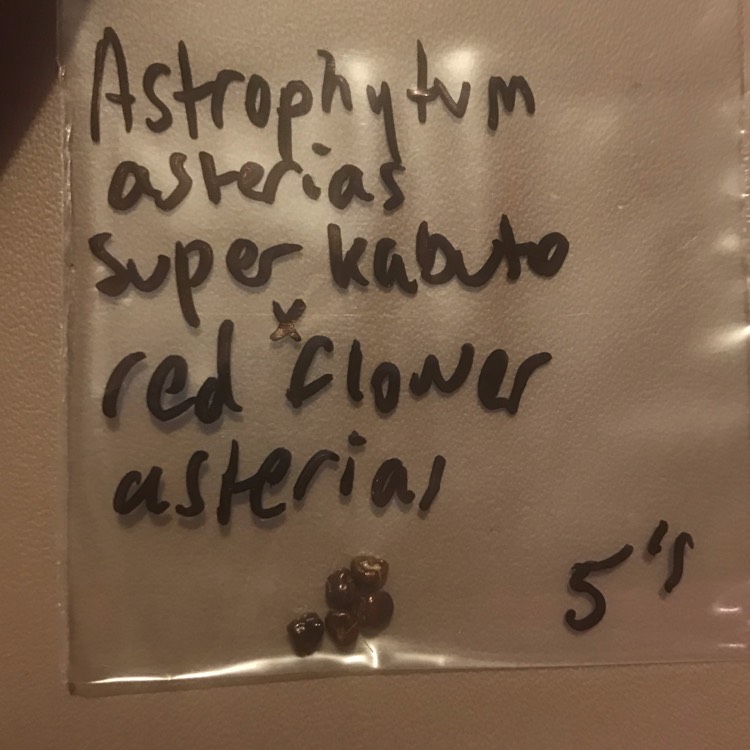 Astrophytum
asterias
super kabuto
x
red flower
asterias
5's